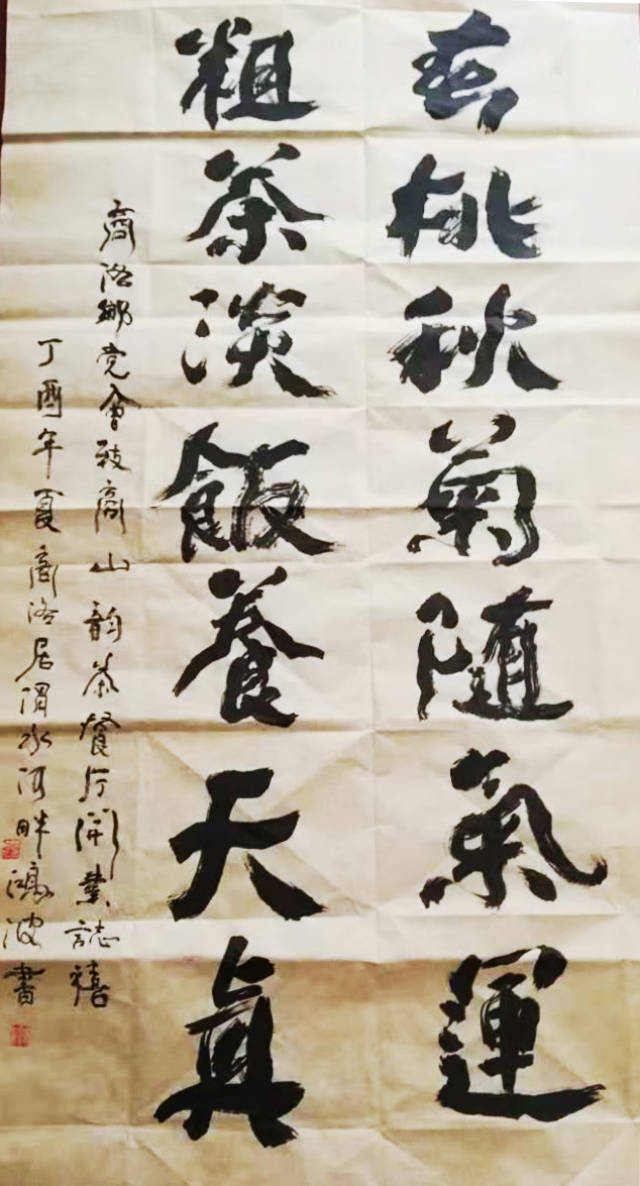 春桃秋菊随氣運
粗茶淡飯養天真
商洛鄉党會商山韵茶餐厅開業誌禧
丁酉年夏商洛居渭水河畔鴻波書